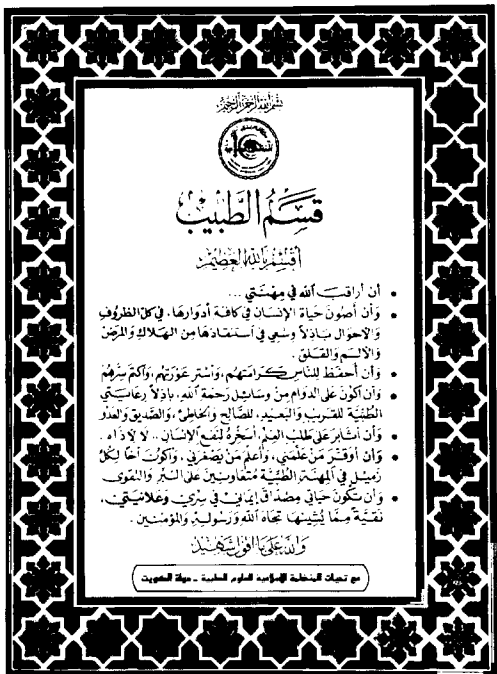 بسم الله الرحمن الرحيم
قسم الطبيب
أقسم بالله العظيم
• أن أراقب الله في مهنتي ...
• وأن أصون حياة الإنسان في كافة أدوارها، في كل الظروف
والأحوال باذلاً وسعي في استنقاذها من الهلاك والمرض
والألم والقلق.
• وأن أحفظ للناس كرامتهم، وأستر عورتهم، وأكتم سرهم
• وأن أكون على الدوام من وسائل رحمة الله، باذلاً رعايتي
الطبية للقريب والبعيد، للصالح والخاطئ، والصديق والعدو
• وأن أثابر على طلب العلم، أسخره لنفع الإنسان .. لا لأذاه.
• وأن أوقر من علمني، وأعلم من يصغرني، وأكون أخا لكل
زميل في المهنة الطبية متعاونين على البر والتقوى
• وأن تكون حياتي مصداق إيماني في سري وعلانيتي،
نقية مما يشينها تجاه الله ورسوله والمؤمنين.
والله على ما أقول شهيد
مع تحيات المنظمة الإسلامية للعلوم الطبية - دولة الكويت